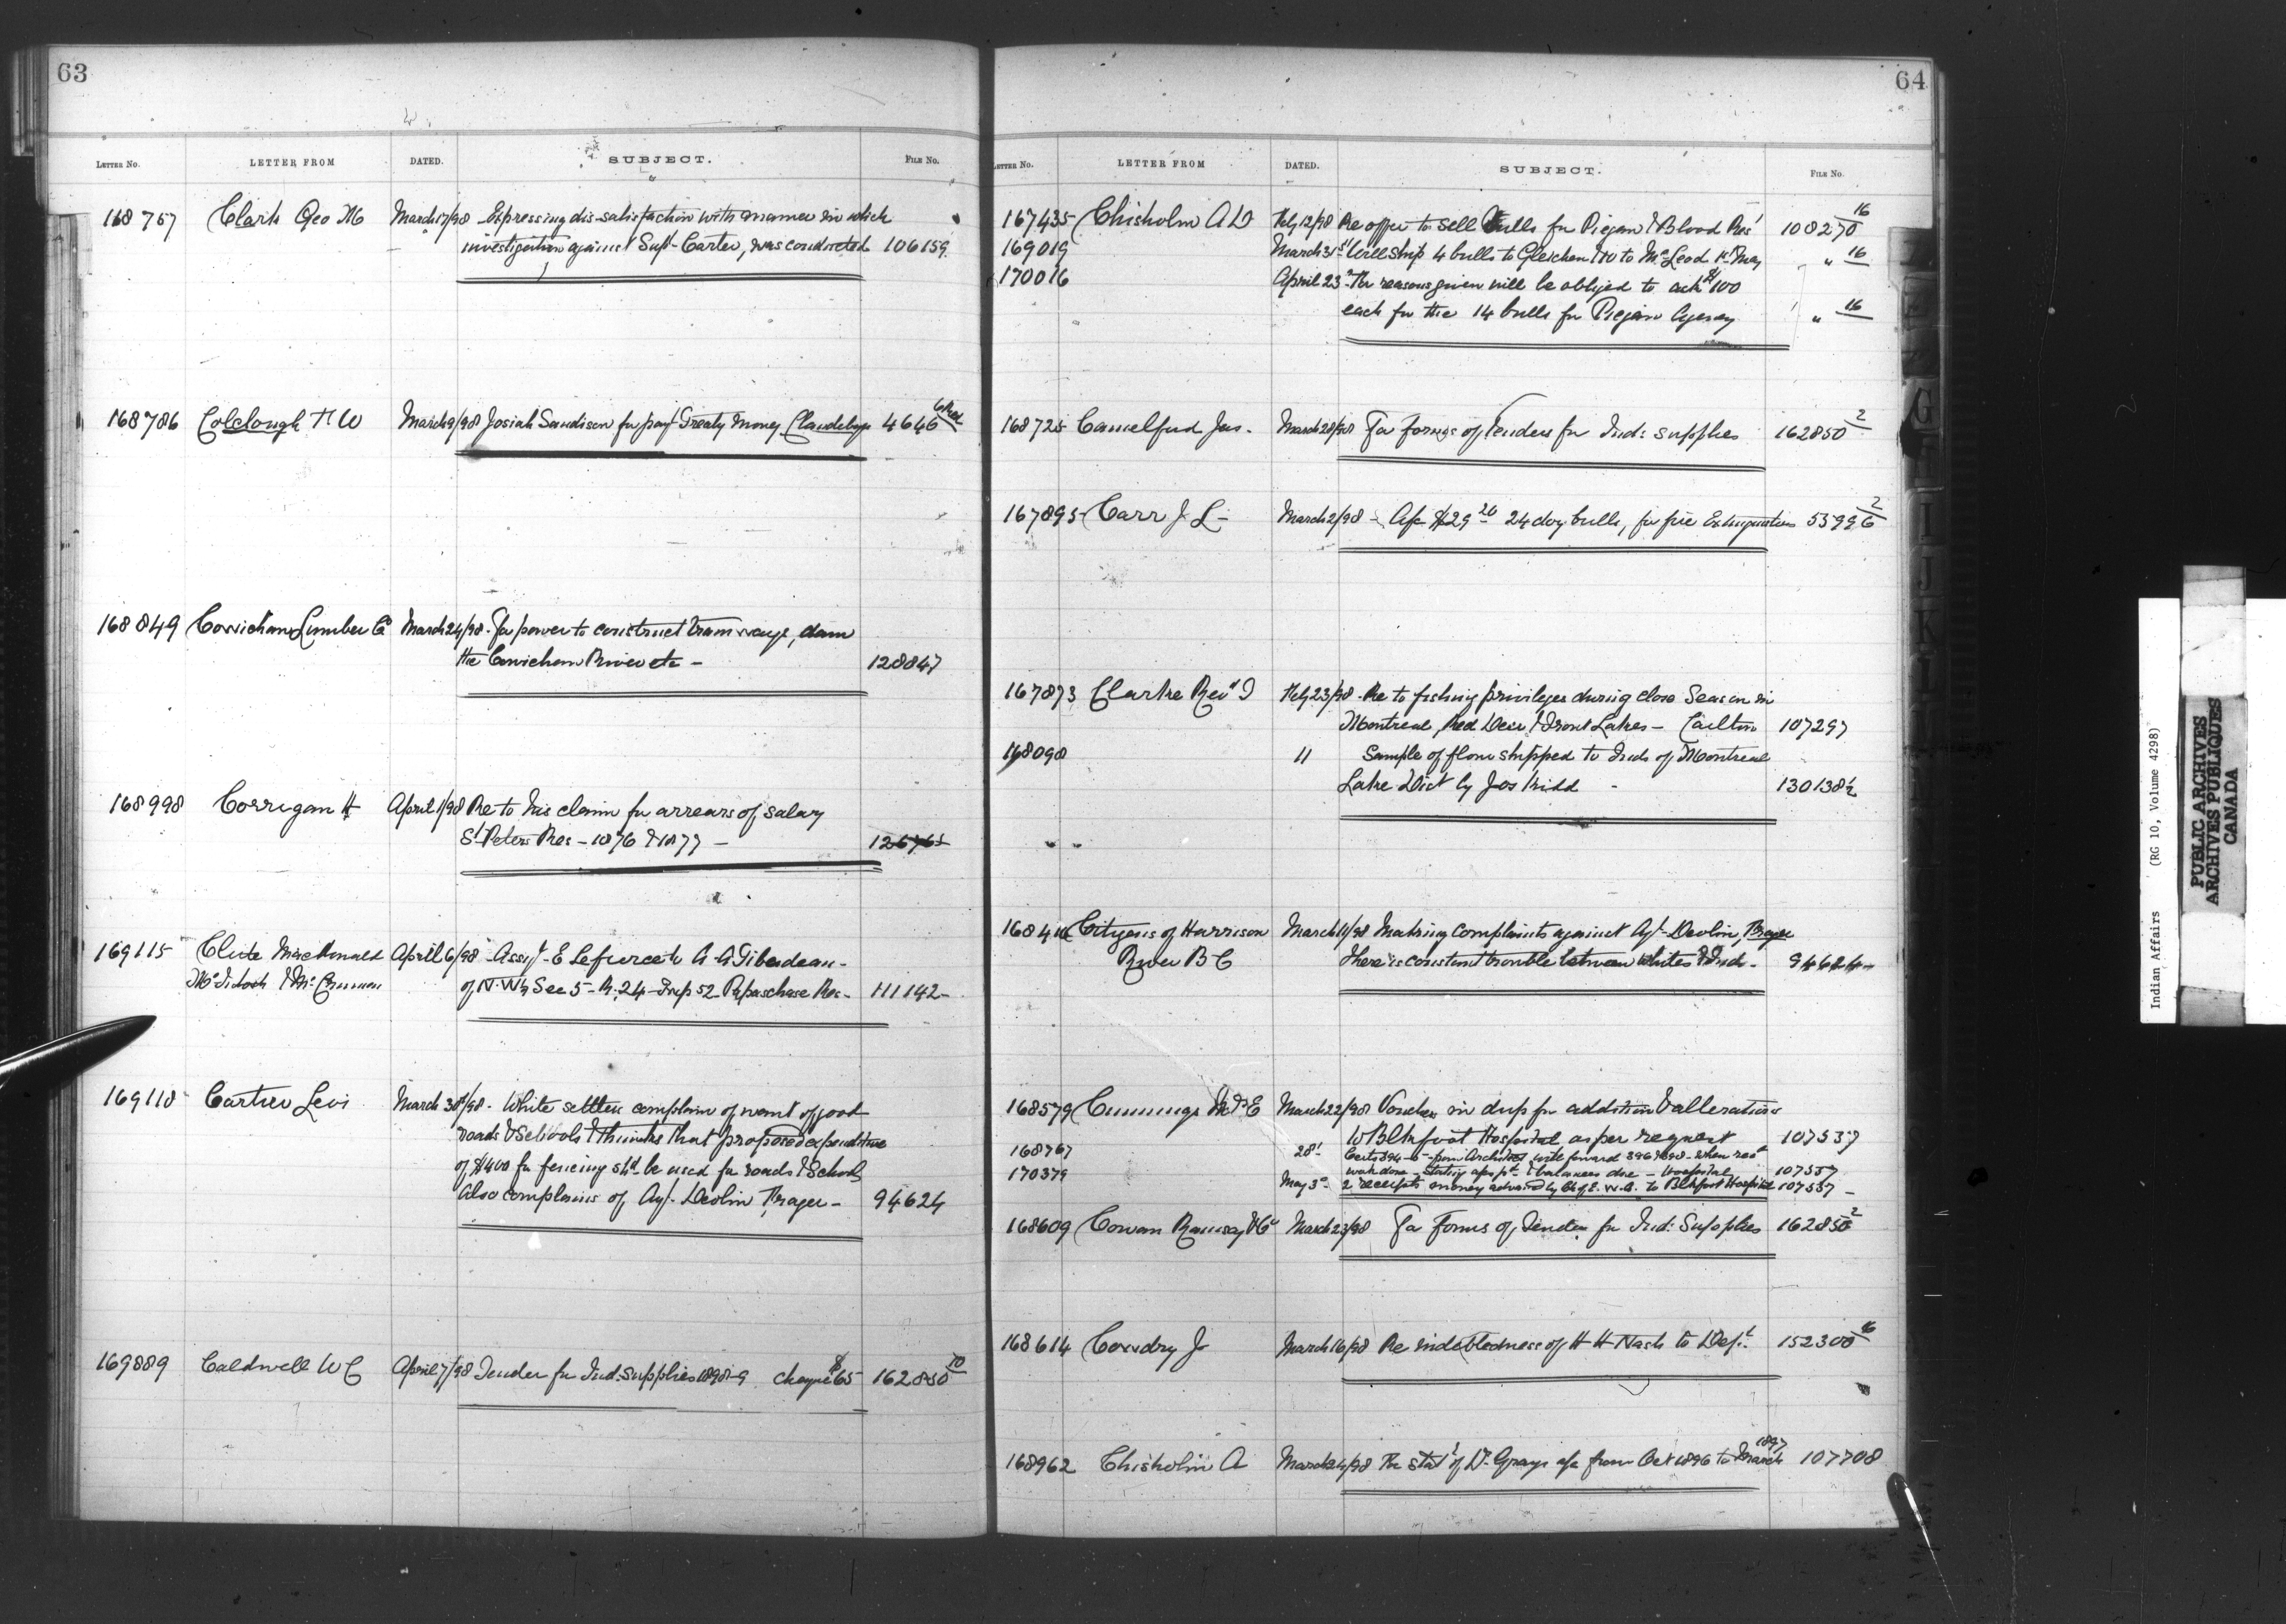 63
LETTER No. LETTER FROM DATED. SUBJECT. FILE No.
168757 Clark Geo M March 17/98 Expressing dis-satisfaction with manner in which
investigation against Supt Carter, was conducted 106159
168786 Colclough H W March 9/98 Josiah Sandison for payt Treaty Money Clandeboye 4646
168849 Cowichan Lumber Co March 24/98 - For power to construct tramways, dam
the Cowichan River etc - 128847
168998 Corrigan H April 1/98 Re to his claim for arrears of salary
St Peters Res - 1876 & 1877 - 12676
169115 Clute MacDonald April 6/98 - Asst - E Lefurce to A A Tiberdeau -
& Mc of N.W¼ Sec 5 - R. 24 - Twp 52 Papaschase Res - 111142 -
169118 Cartier Levi March 30th/98 - White settlers complain of want of good
roads & Schools & thinks that proposed expenditure
of $400 for fencing shd be used for roads & School
Also complains of Agt. Devlin Fraser - 94624
169889 Caldwell W C April 7/98 Tender for Ind: Supplies 1898-9 cheque $65 162850 10
64
LETTER No. LETTER FROM DATED. SUBJECT. FILE No.
167435 Chisholm A D Feby 12/98 Re offer to sell Bulls for Piegan & Blood Res 108270 16
169019 March 31st Will ship 4 bulls to Gleichen & 10 to McLeod 1st May " 16
170016 April 23rd For reasons given will be obliged to ask $100
each for the 14 bulls for Piegan Agency " 16
168725 Camelford Jas. March 28/98 For forms of Tenders for Ind: supplies 162850 2
167895 Carr J L - March 2/98 - A/c $29 20 24 doz bulls, for fire Extinguishers 53996 2
167873 Clarke Revd I Feby 23/98 - Re to fishing privileges during close Season in
Montreal, Red Deer & Trout Lakes - Carlton 107297
168098 " Sample of flour shipped to Inds of Montreal
Lake Dist by Jos Kidd - 130138½
168416 Citizens of Harrison March 11/98 Making complaints against Agt - Devlin, Fraser
River B C There is constant trouble between whites & Ind - 94624
168579 Cummings March 22/98 Vouchers in dup for addition & alterations
to Blkfoot Hospital as per request 107537
168767 28th Certs 394-5 from Architect will forward 396 & 398 - when recd
170379 work done - stating a/cs pd - & balances due - Hospital 107537
May 3rd 2 receipts money advanced by Ch of E. W.A. to Blkfoot Hospital 107537 -
168609 Cowan Ramsay & Co March 23/98 For Forms of Tender for Ind: Supplies 162850 2
168614 Cowdry J March 16/98 Re indebtedness of H H Nash to Dept. 152300 16
168962 Chisholm A March 24/98 Re statt of Dr Grays a/c from Oct 1896 to March 1897 107708
Indian Affairs (RG 10, Volume 4298)
PUBLIC ARCHIVES
ARCHIVES PUBLIQUES
CANADA
G
I
J
K